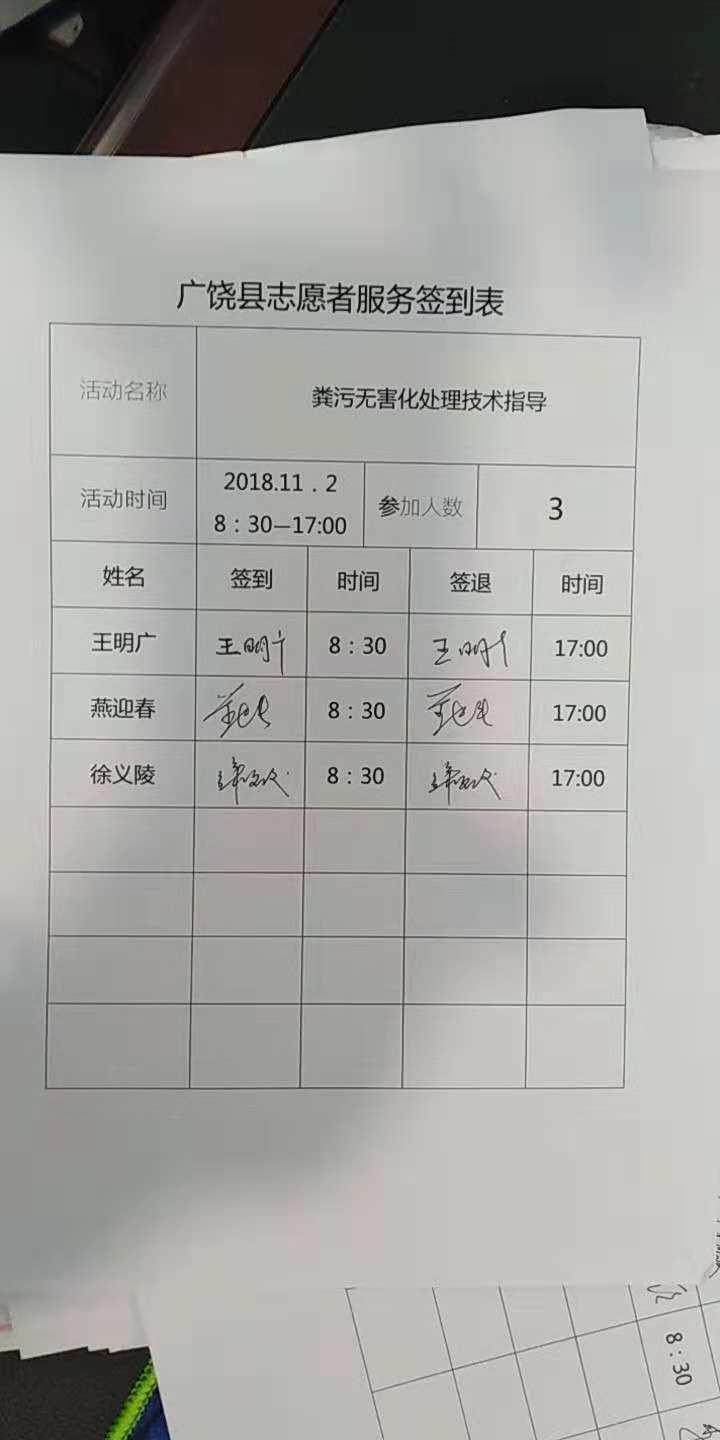 广饶县志愿者服务签到表
活动名称 粪污无害化处理技术指导
活动时间 2018.11.2 参加人数 3
8：30—17:00
姓名 签到 时间 签退 时间
王明广 王明广 8：30 王明广 17:00
燕迎春 8：30 17:00
徐义陵 8：30 17:00
8：30